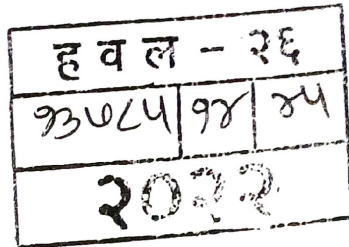 ह व ल - २६
१३७८५ १४ ४५
२०२२